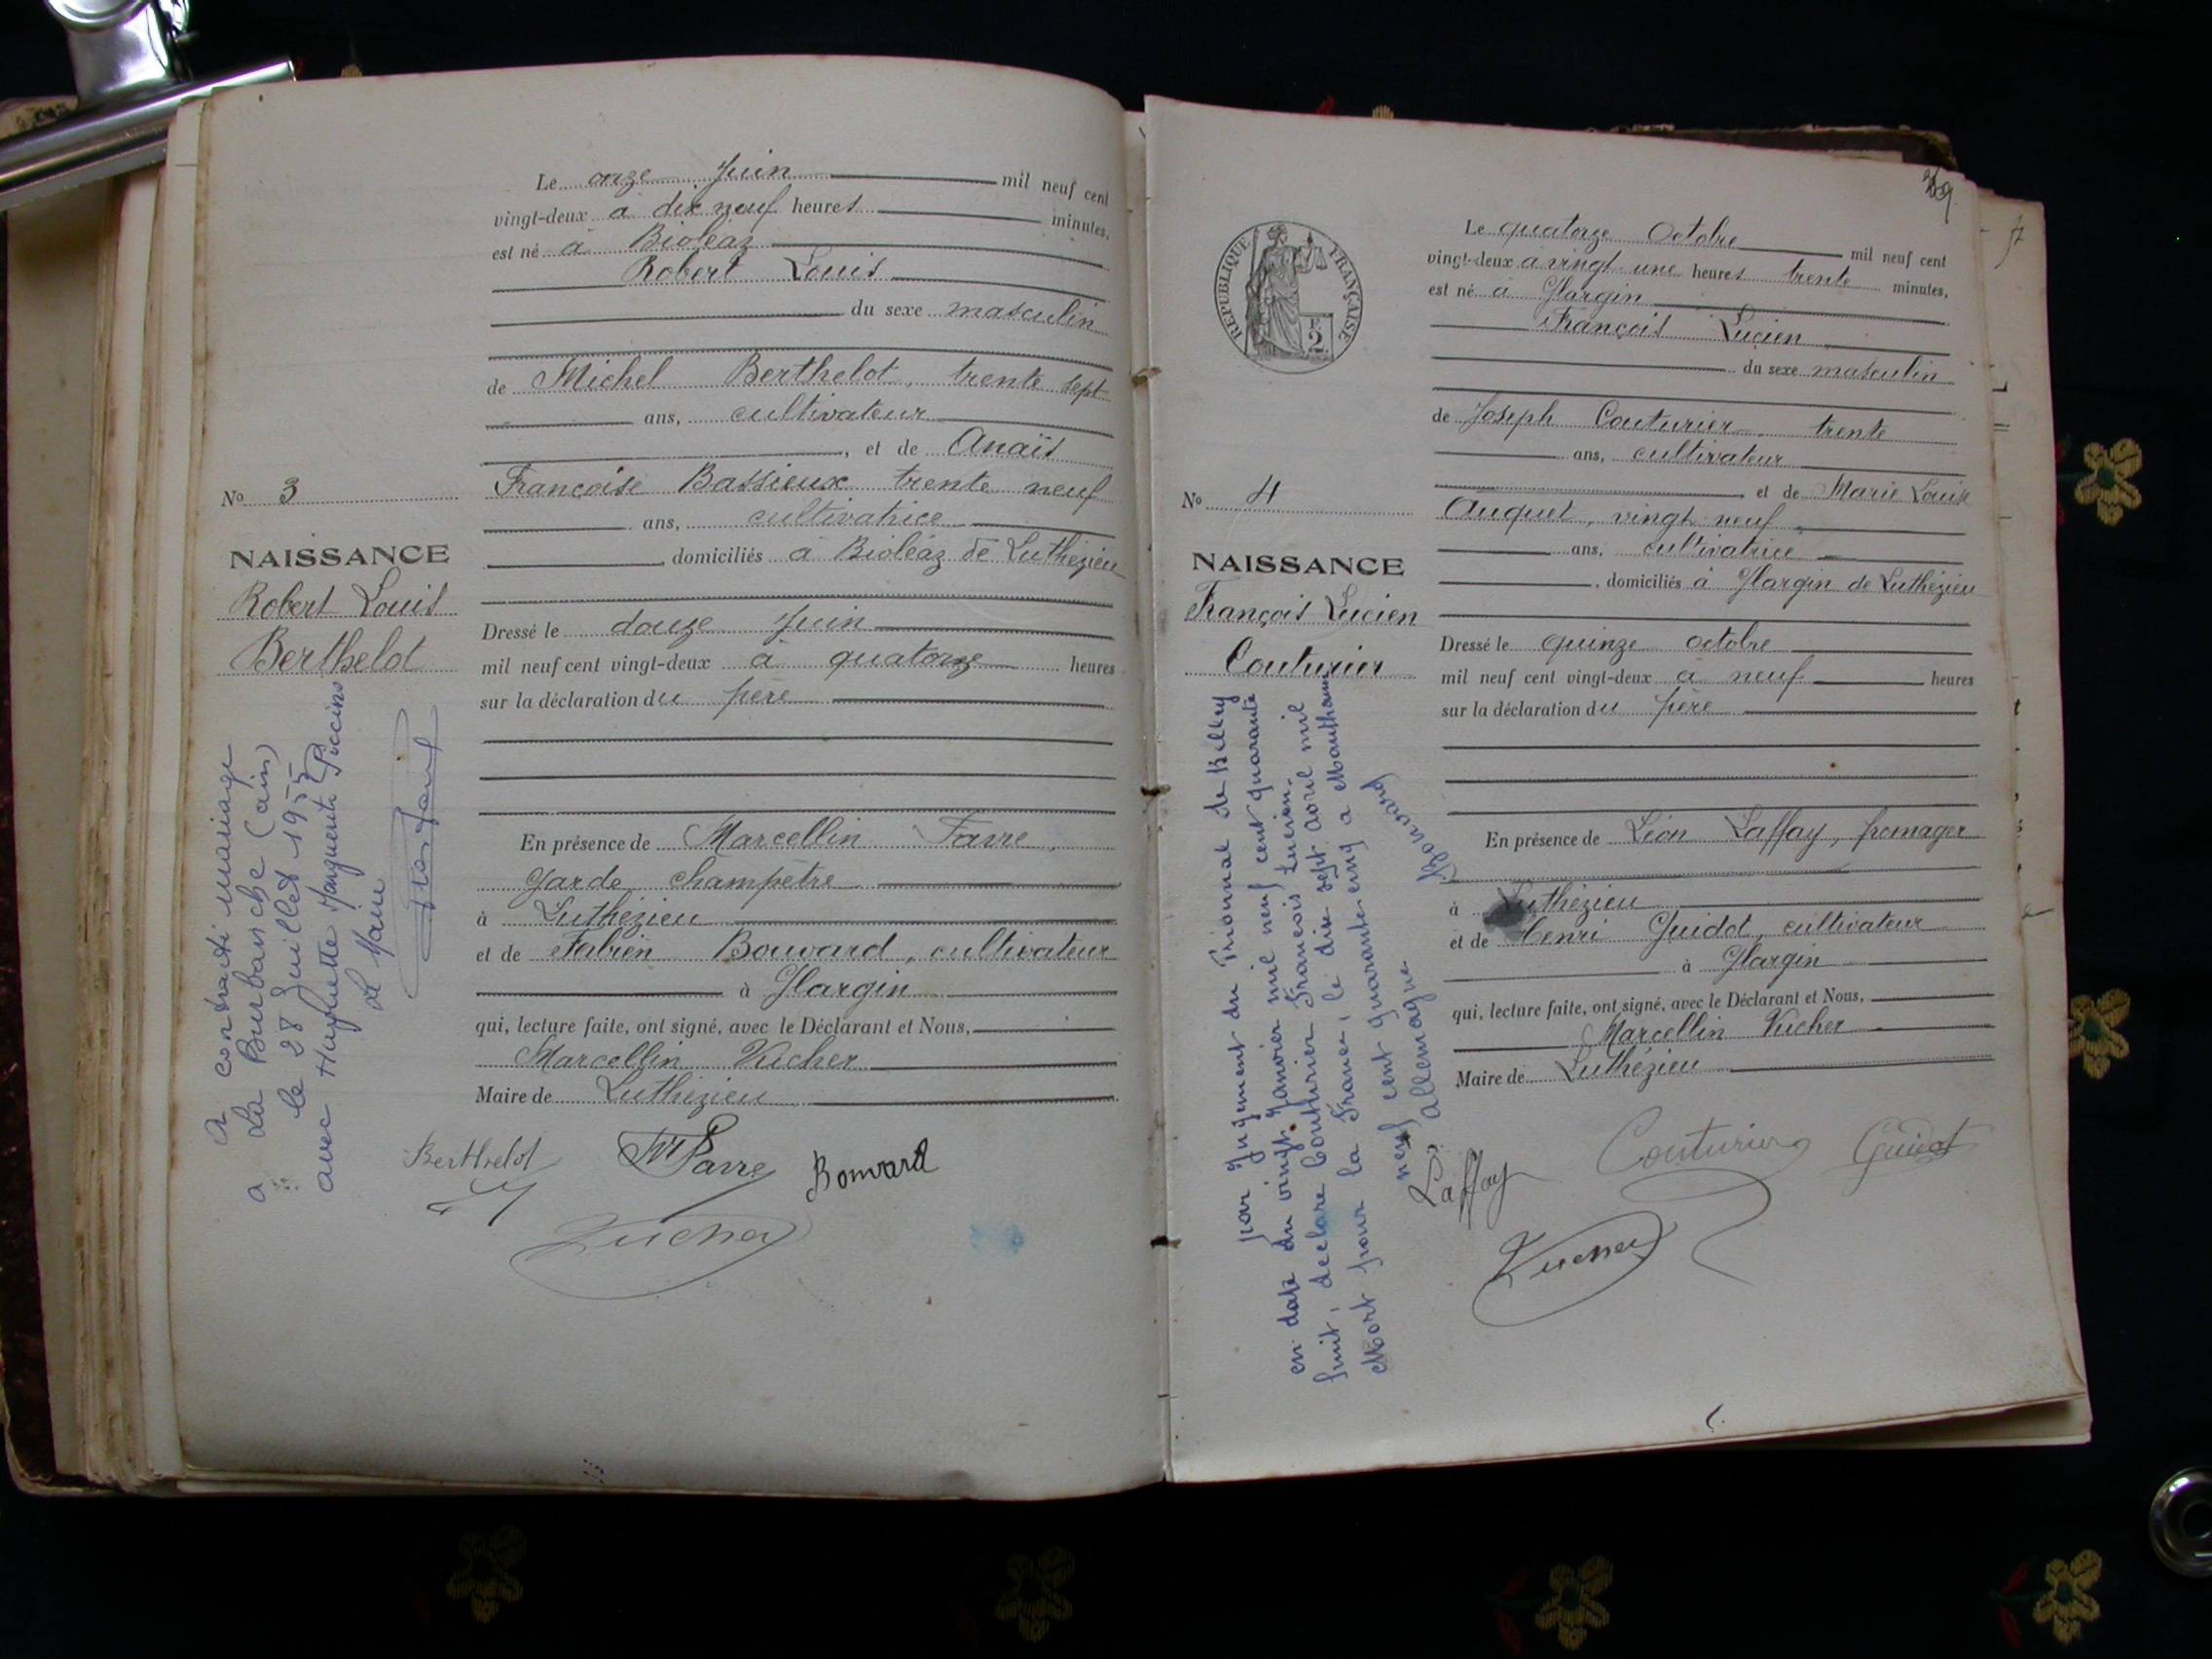 Le onze Juin mil neuf cent
vingt-deux à dix neuf heures minutes,
est né à Bioléaz
Robert Louis
du sexe masculin
de Michel Berthelot, trente sept
ans, cultivateur
, et de Anaïs
Françoise Bassieux trente neuf
ans, cultivatrice
, domiciliés à Bioléaz de Luthézieu
Dressé le douze Juin
mil neuf cent vingt-deux à quatorze heures
sur la déclaration du père
En présence de Marcellin Favre,
Garde champêtre
à Luthézieu
et de Fabien Bouvard, cultivateur
à Hargin
qui, lecture faite, ont signé, avec le Déclarant et Nous,
Marcellin Vucher
Maire de Luthézieu
Berthelot
Favre
Bouvard
Vucher
No 3
NAISSANCE
Robert Louis
Berthelot
A contracté mariage
à La Burbanche (ain)
le 28 Juillet 1955
avec Huguette Marguerite
Le Maire
369
RÉPUBLIQUE FRANÇAISE
2
Le quatorze Octobre mil neuf cent
vingt-deux à vingt une heures trente minutes,
est né à Hargin
François Lucien
du sexe masculin
de Joseph Couturier, trente
ans, cultivateur
et de Marie Louise
Auquet, vingt neuf
ans, cultivatrice
, domiciliés à Hargin de Luthézieu
Dressé le quinze octobre
mil neuf cent vingt-deux à neuf heures
sur la déclaration du père
En présence de Léon Laffay, fromager
à Luthézieu
et de Henri Guidot, cultivateur
à Hargin
qui, lecture faite, ont signé, avec le Déclarant et Nous,
Marcellin Vucher
Maire de Luthézieu
Laffay
Couturier
Guidot
Vucher
No 4
NAISSANCE
François Lucien
Couturier
par Jugement du Tribunal de Belley
en date du vingt Janvier mil neuf cent quarante
huit, déclare Couturier François Lucien.
Mort pour la France, le dix sept avril mil
neuf cent quarante cinq à Mauthausen
Allemagne
Bouvard